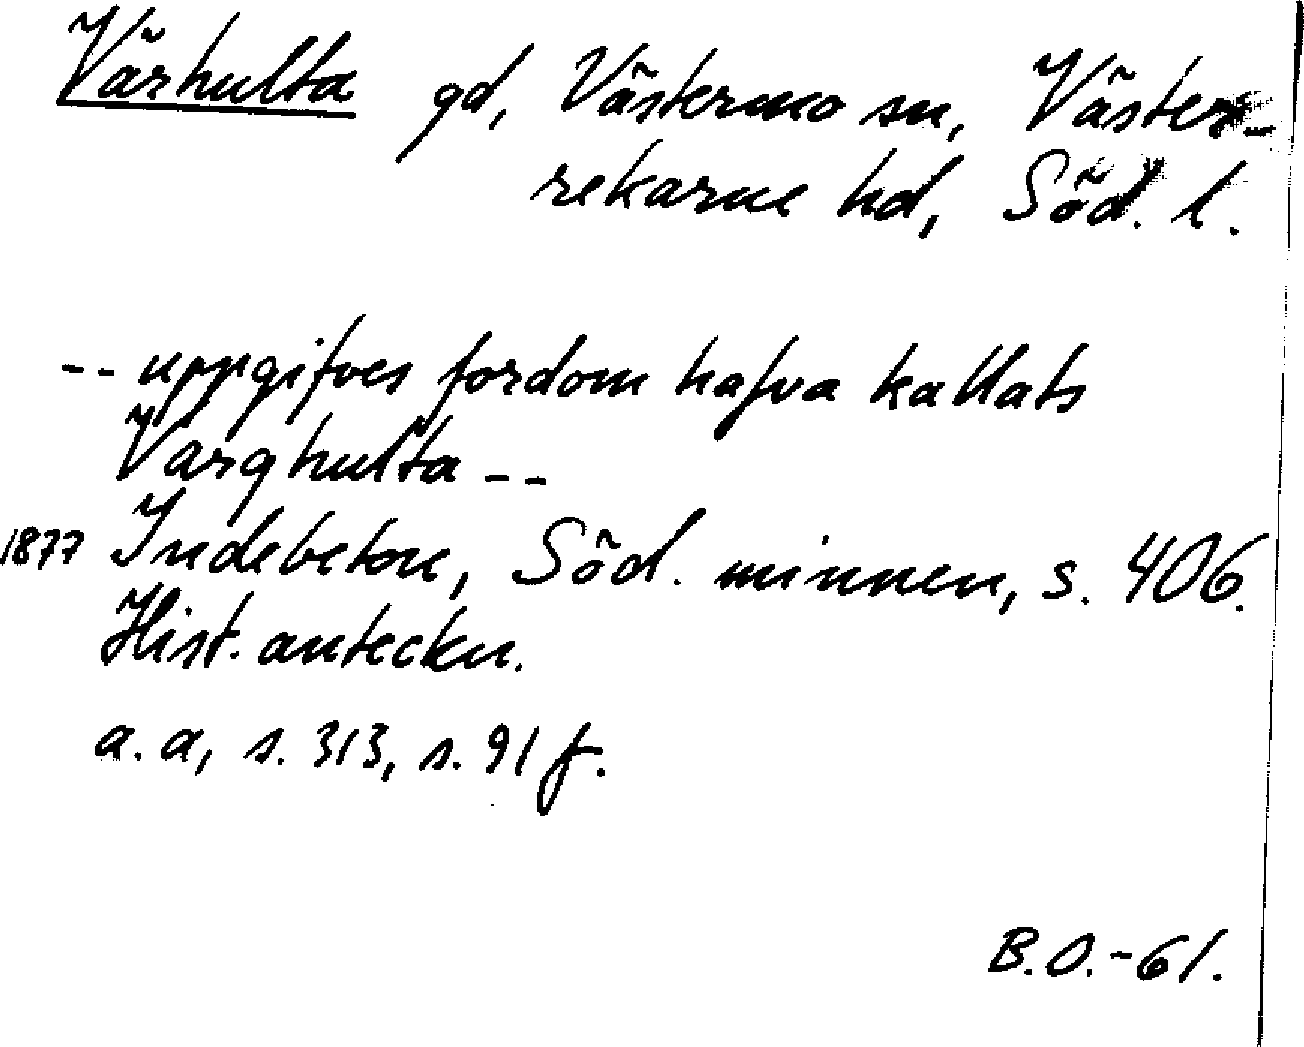 Värhulta gd, Västermo sn, Väster-
rekarne hd, Söd. l.
-- uppgifves fordom hafva kallats
Varghulta --
1877 Indebetou, Söd. minnen, s. 406.
Hist. anteckn.
a. a, s. 313, s. 91 f.
B.O.-61.